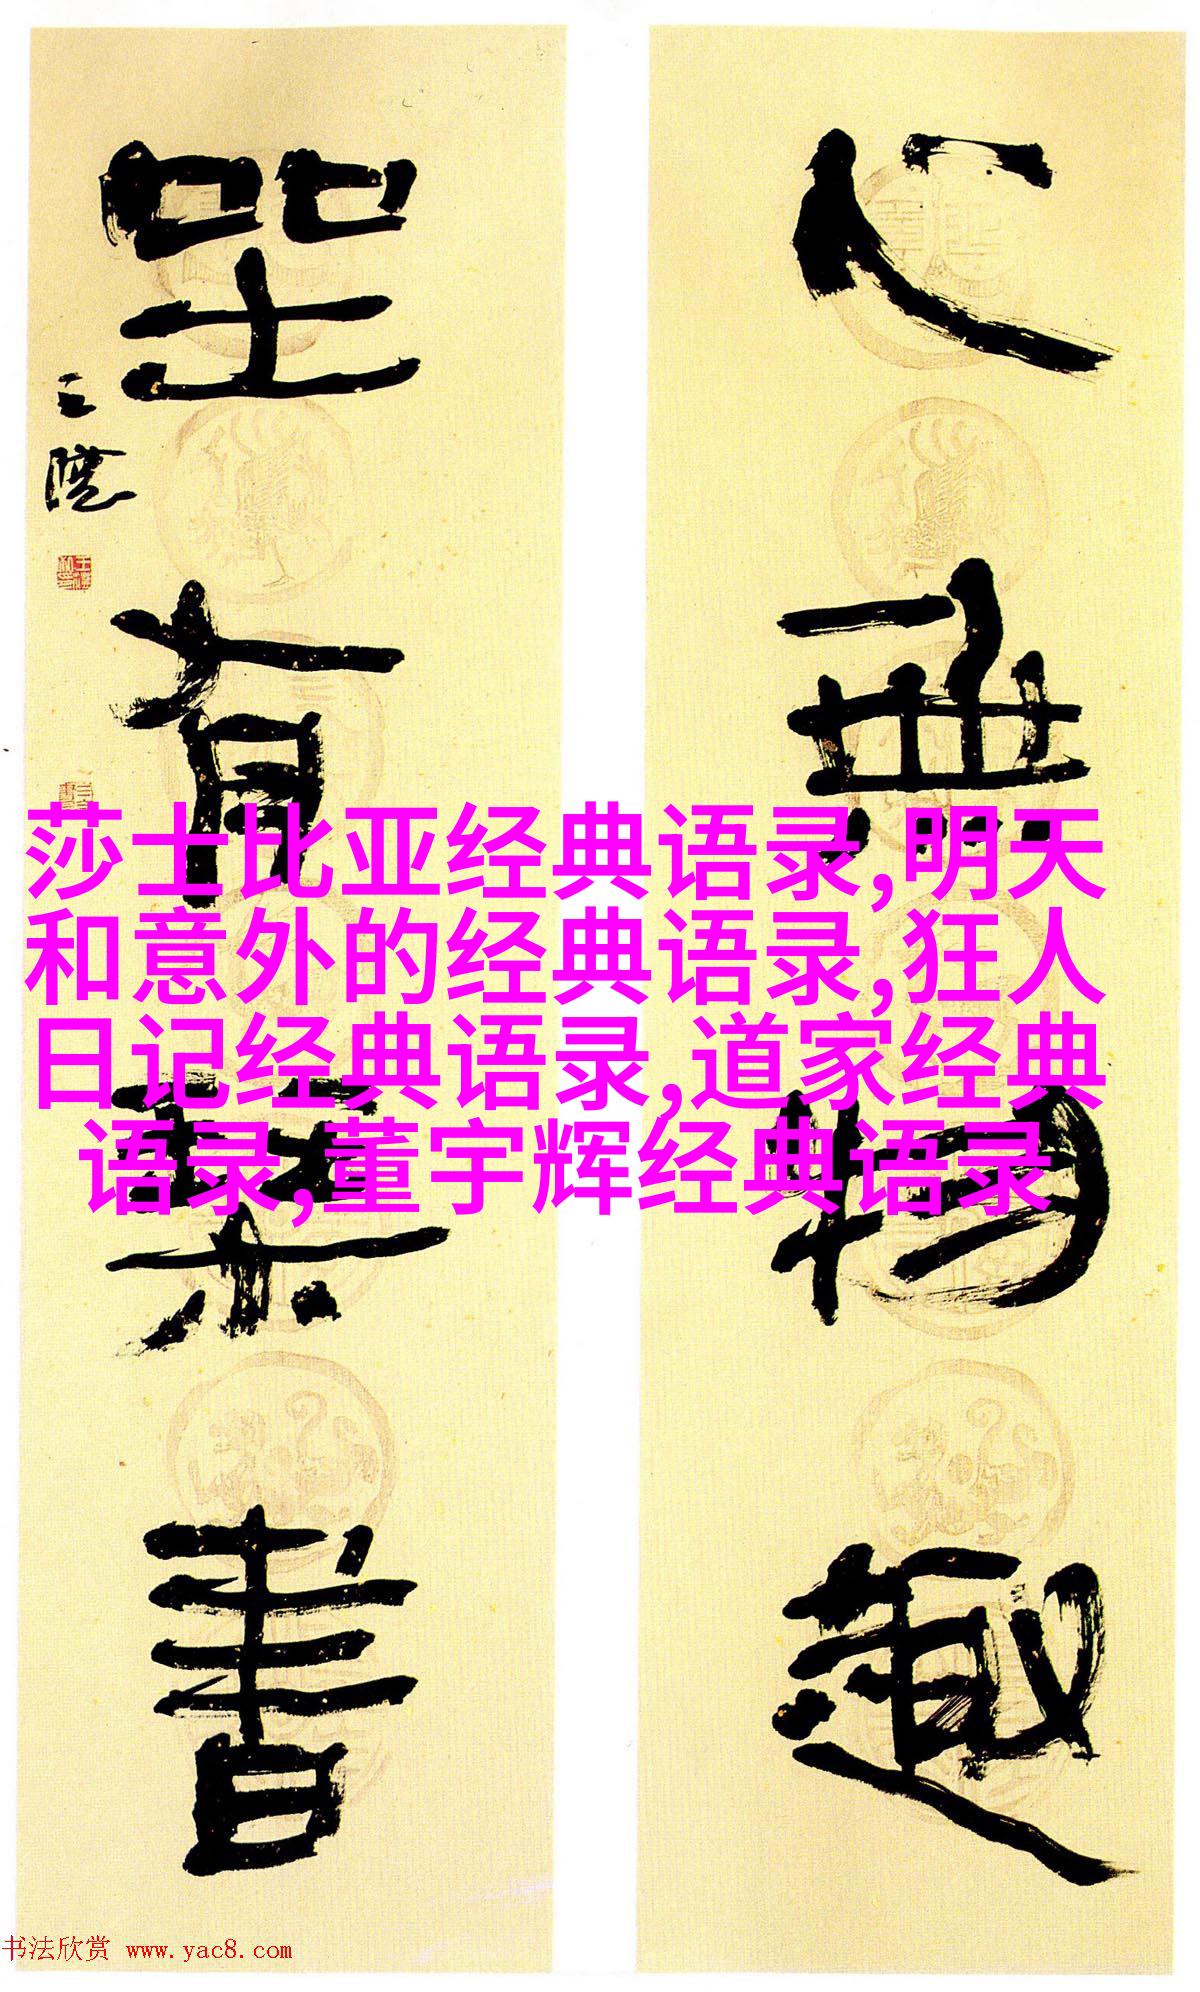 心無物趣
坐有琴書
莎士比亚经典语录,明天
和意外的经典语录,狂人
日记经典语录,道家经典
语录,董宇辉经典语录
书法欣赏 www.yac8.com